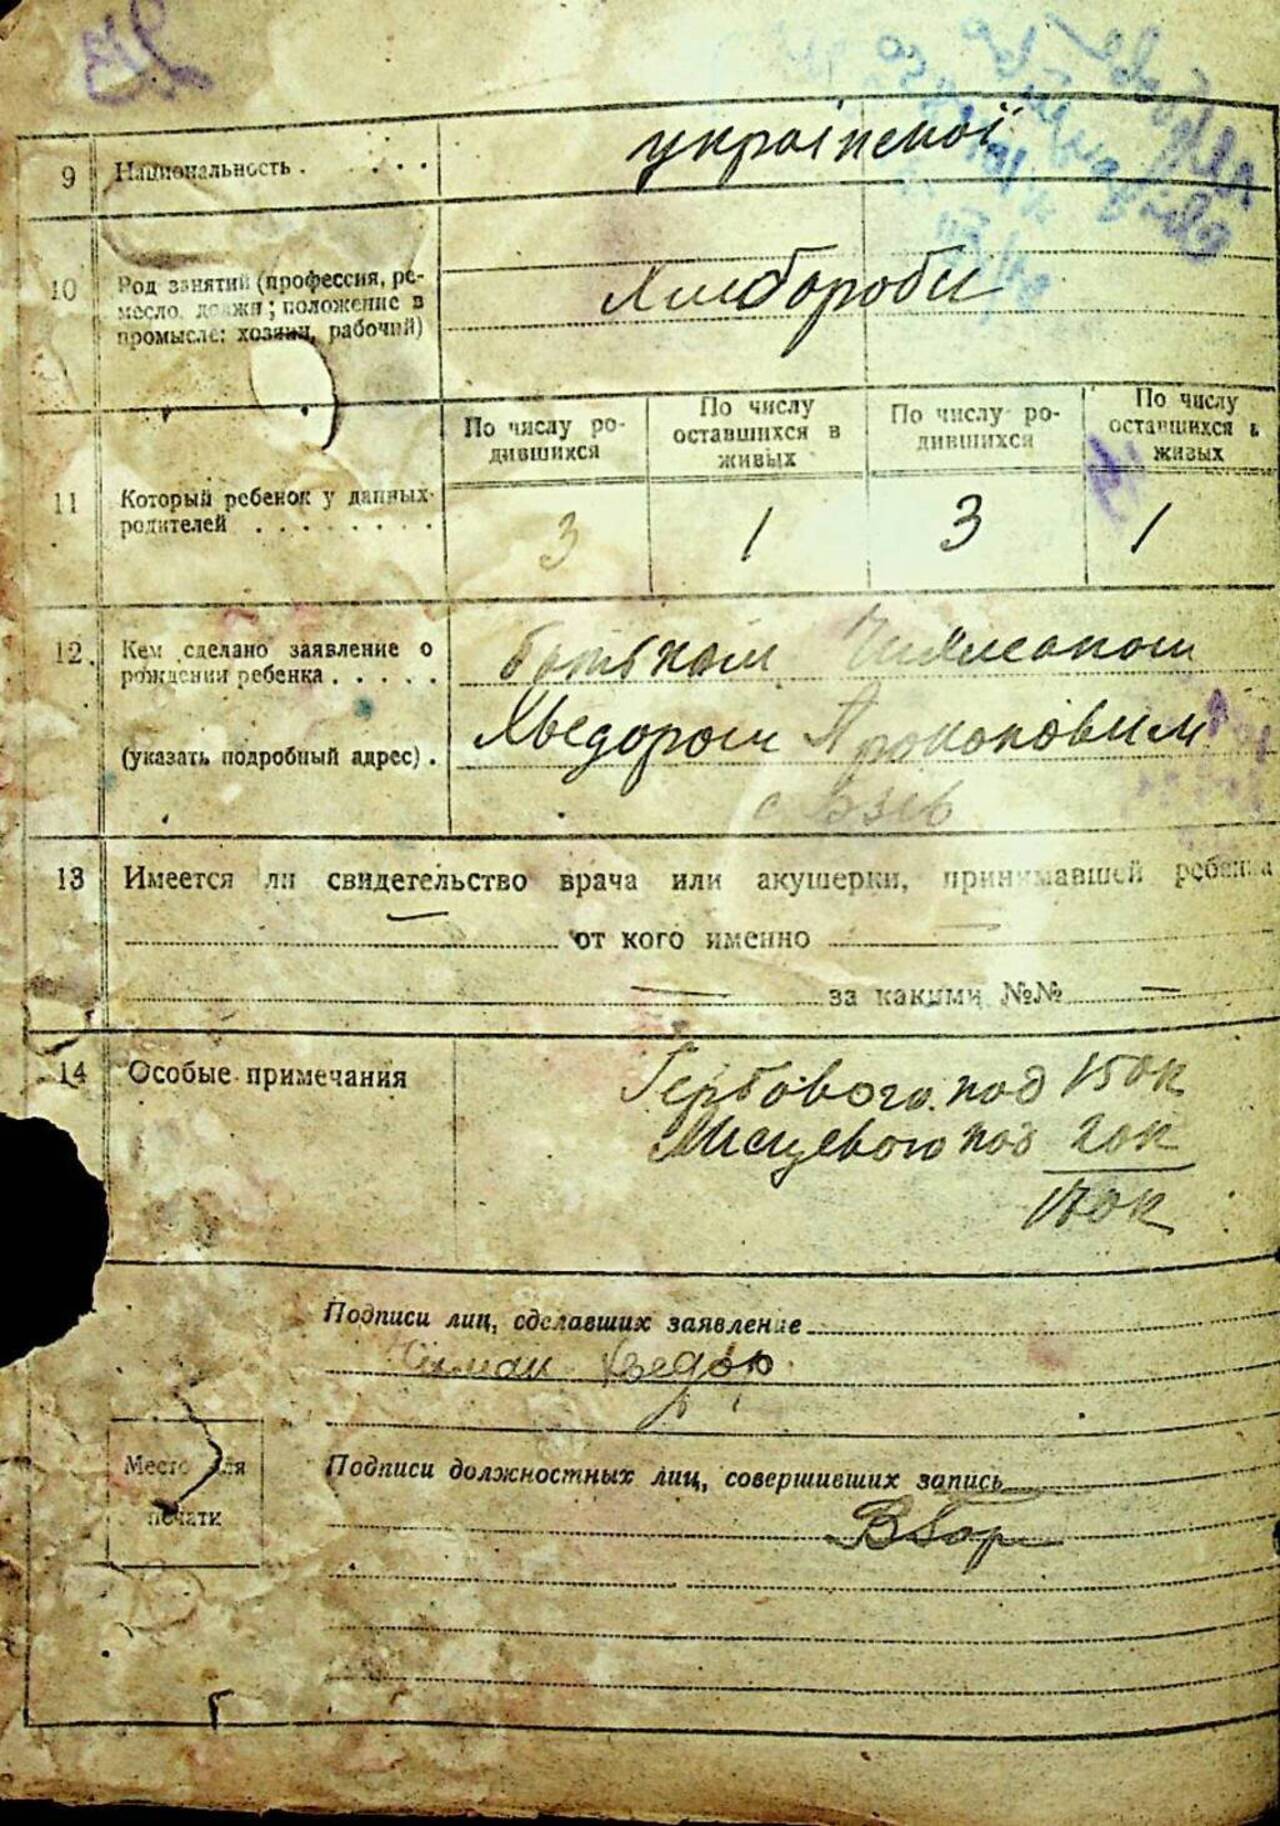 9 Национальность . . . .
української
10 Род занятий (профессия, ре-
месло, должн; положение в
промысле: хозяин, рабочий)
Хлібороби
По числу ро-
дившихся
По числу
оставшихся в
живых
По числу ро-
дившихся
По числу
оставшихся в
живых
11 Который ребенок у данных
родителей . . . . . . . .
3 1 3 1
12. Кем сделано заявление о
рождении ребенка . . . . .
(указать подробный адрес) .
батьком
Хведором Прокоповим
с
13 Имеется ли свидетельство врача или акушерки, принимавшей ребенка
от кого именно
за какими №№
14 Особые примечания
Гербового под 150к
Місцевого под 20к
170к
Подписи лиц, сделавших заявление
Хведор
Место для
печати
Подписи должностных лиц, совершивших запись